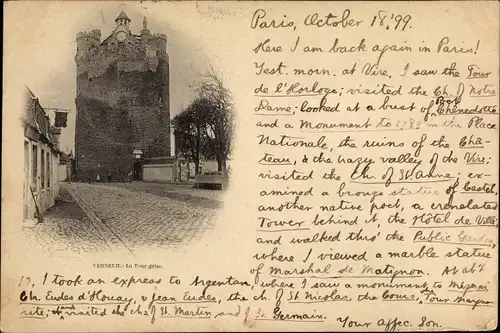 Paris, October 18, '99.
Here I am back again in Paris!
Yest. morn. at Vire, I saw the Tour
de l'Horloge; visited the Ch. of Notre
Dame; looked at a bust of Poet Chênedollé
and a Monument to 1789 in the Place
Nationale, the ruins of the Châ-
teau, & the hazy valley of the Vire;
visited the Ch. of St. Anne; ex-
amined a bronze statue of Castel,
another native poet, a crenelated
Tower behind it, the Hôtel de Ville
and walked thro' the Public Garden
where I viewed a marble statue
of Marshal de Matignon. At ab't
VERNEUIL - La Tour grise.
10, I took an express to Argentan, where I saw a monument to Mézerai
Ch. Eudes d'Houay, & Jean Eudes, the ch. of St. Nicolas, the Cours, Tour Margue-
rite; & visited the chs. of St. Martin and of St. Germain. Your affec. Son.